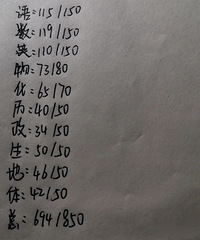 语:115/150
数:119/150
英:110/150
物:73/80
化:65/70
历:40/50
政:34/50
生:50/50
地:46/50
体:42/50
总:694/850